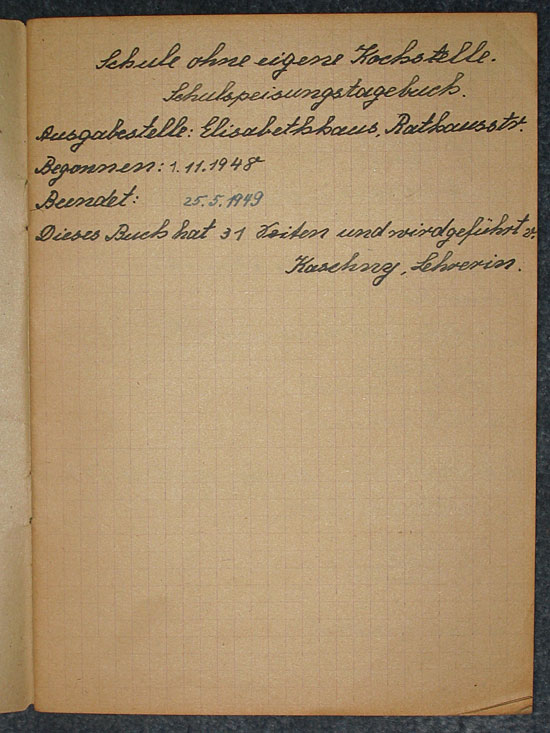 Schule ohne eigene Kochstelle.
Schulspeisungstagebuch.
Ausgabestelle: Elisabethhaus, Rathausstr.
Begonnen: 1.11.1948
Beendet: 25.5.1949
Dieses Buch hat 31 Seiten und wird geführt v.
Kaschny, Lehrerin.